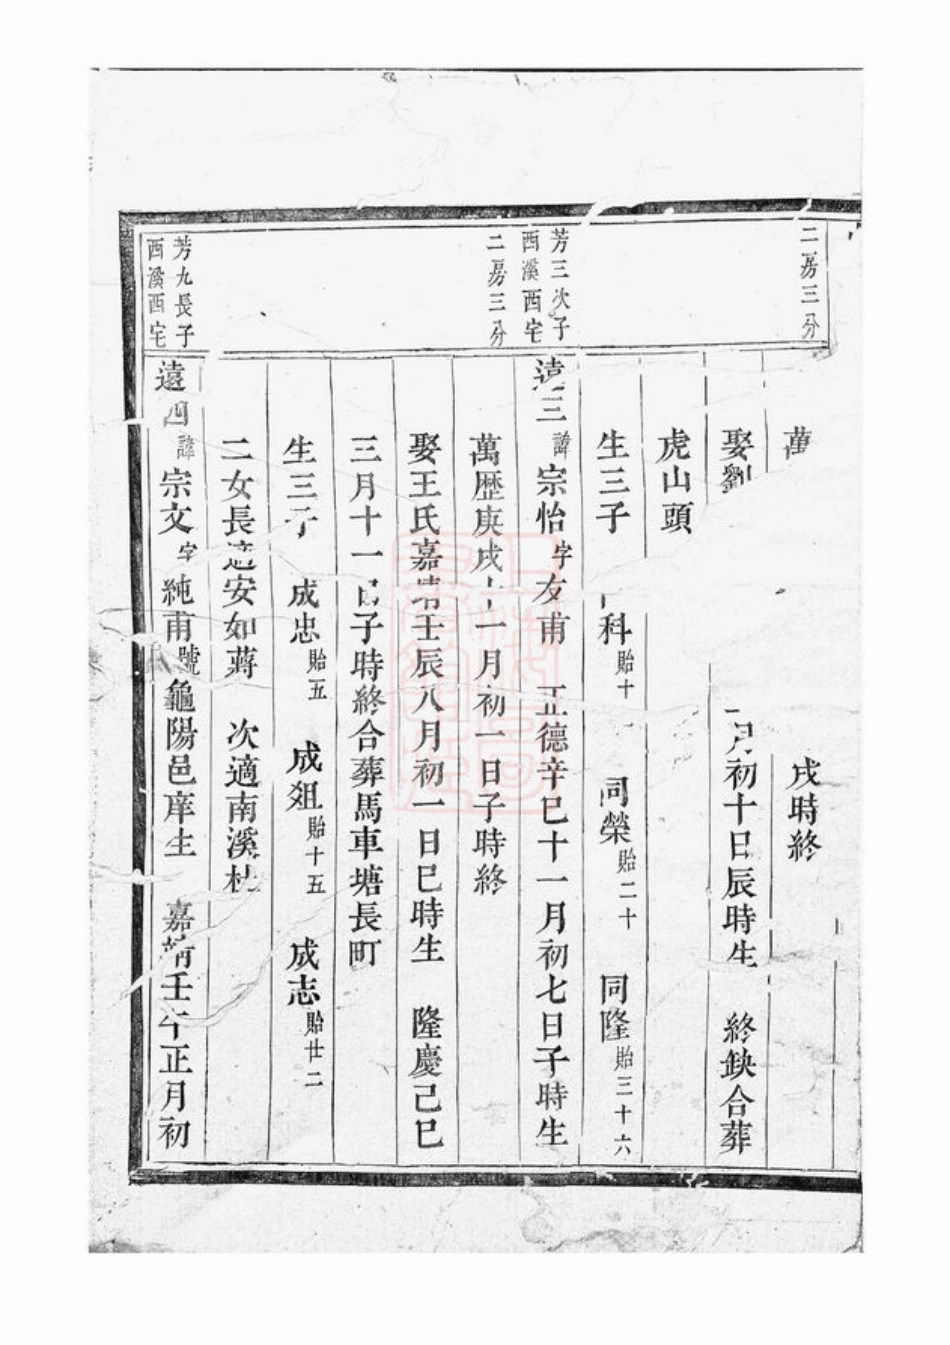 二房三分
萬
戌時終
娶劉
月初十日辰時生 終缺合葬
虎山頭
生三子 科貽十 同榮貽二十 同隆貽三十六
芳三次子
西溪西宅
二房三分
遠三諱宗怡字友甫 正德辛巳十一月初七日子時生
萬歷庚戌十一月初一日子時終
娶王氏嘉靖壬辰八月初一日巳時生 隆慶己巳
三月十一日子時終合葬馬車塘長町
生三子 成忠貽五 成爼貽十五 成志貽廿二
二女長適安如蔣 次適南溪杜
芳九長子
西溪西宅
遠四諱宗文字純甫號龜陽邑庠生 嘉靖壬午正月初